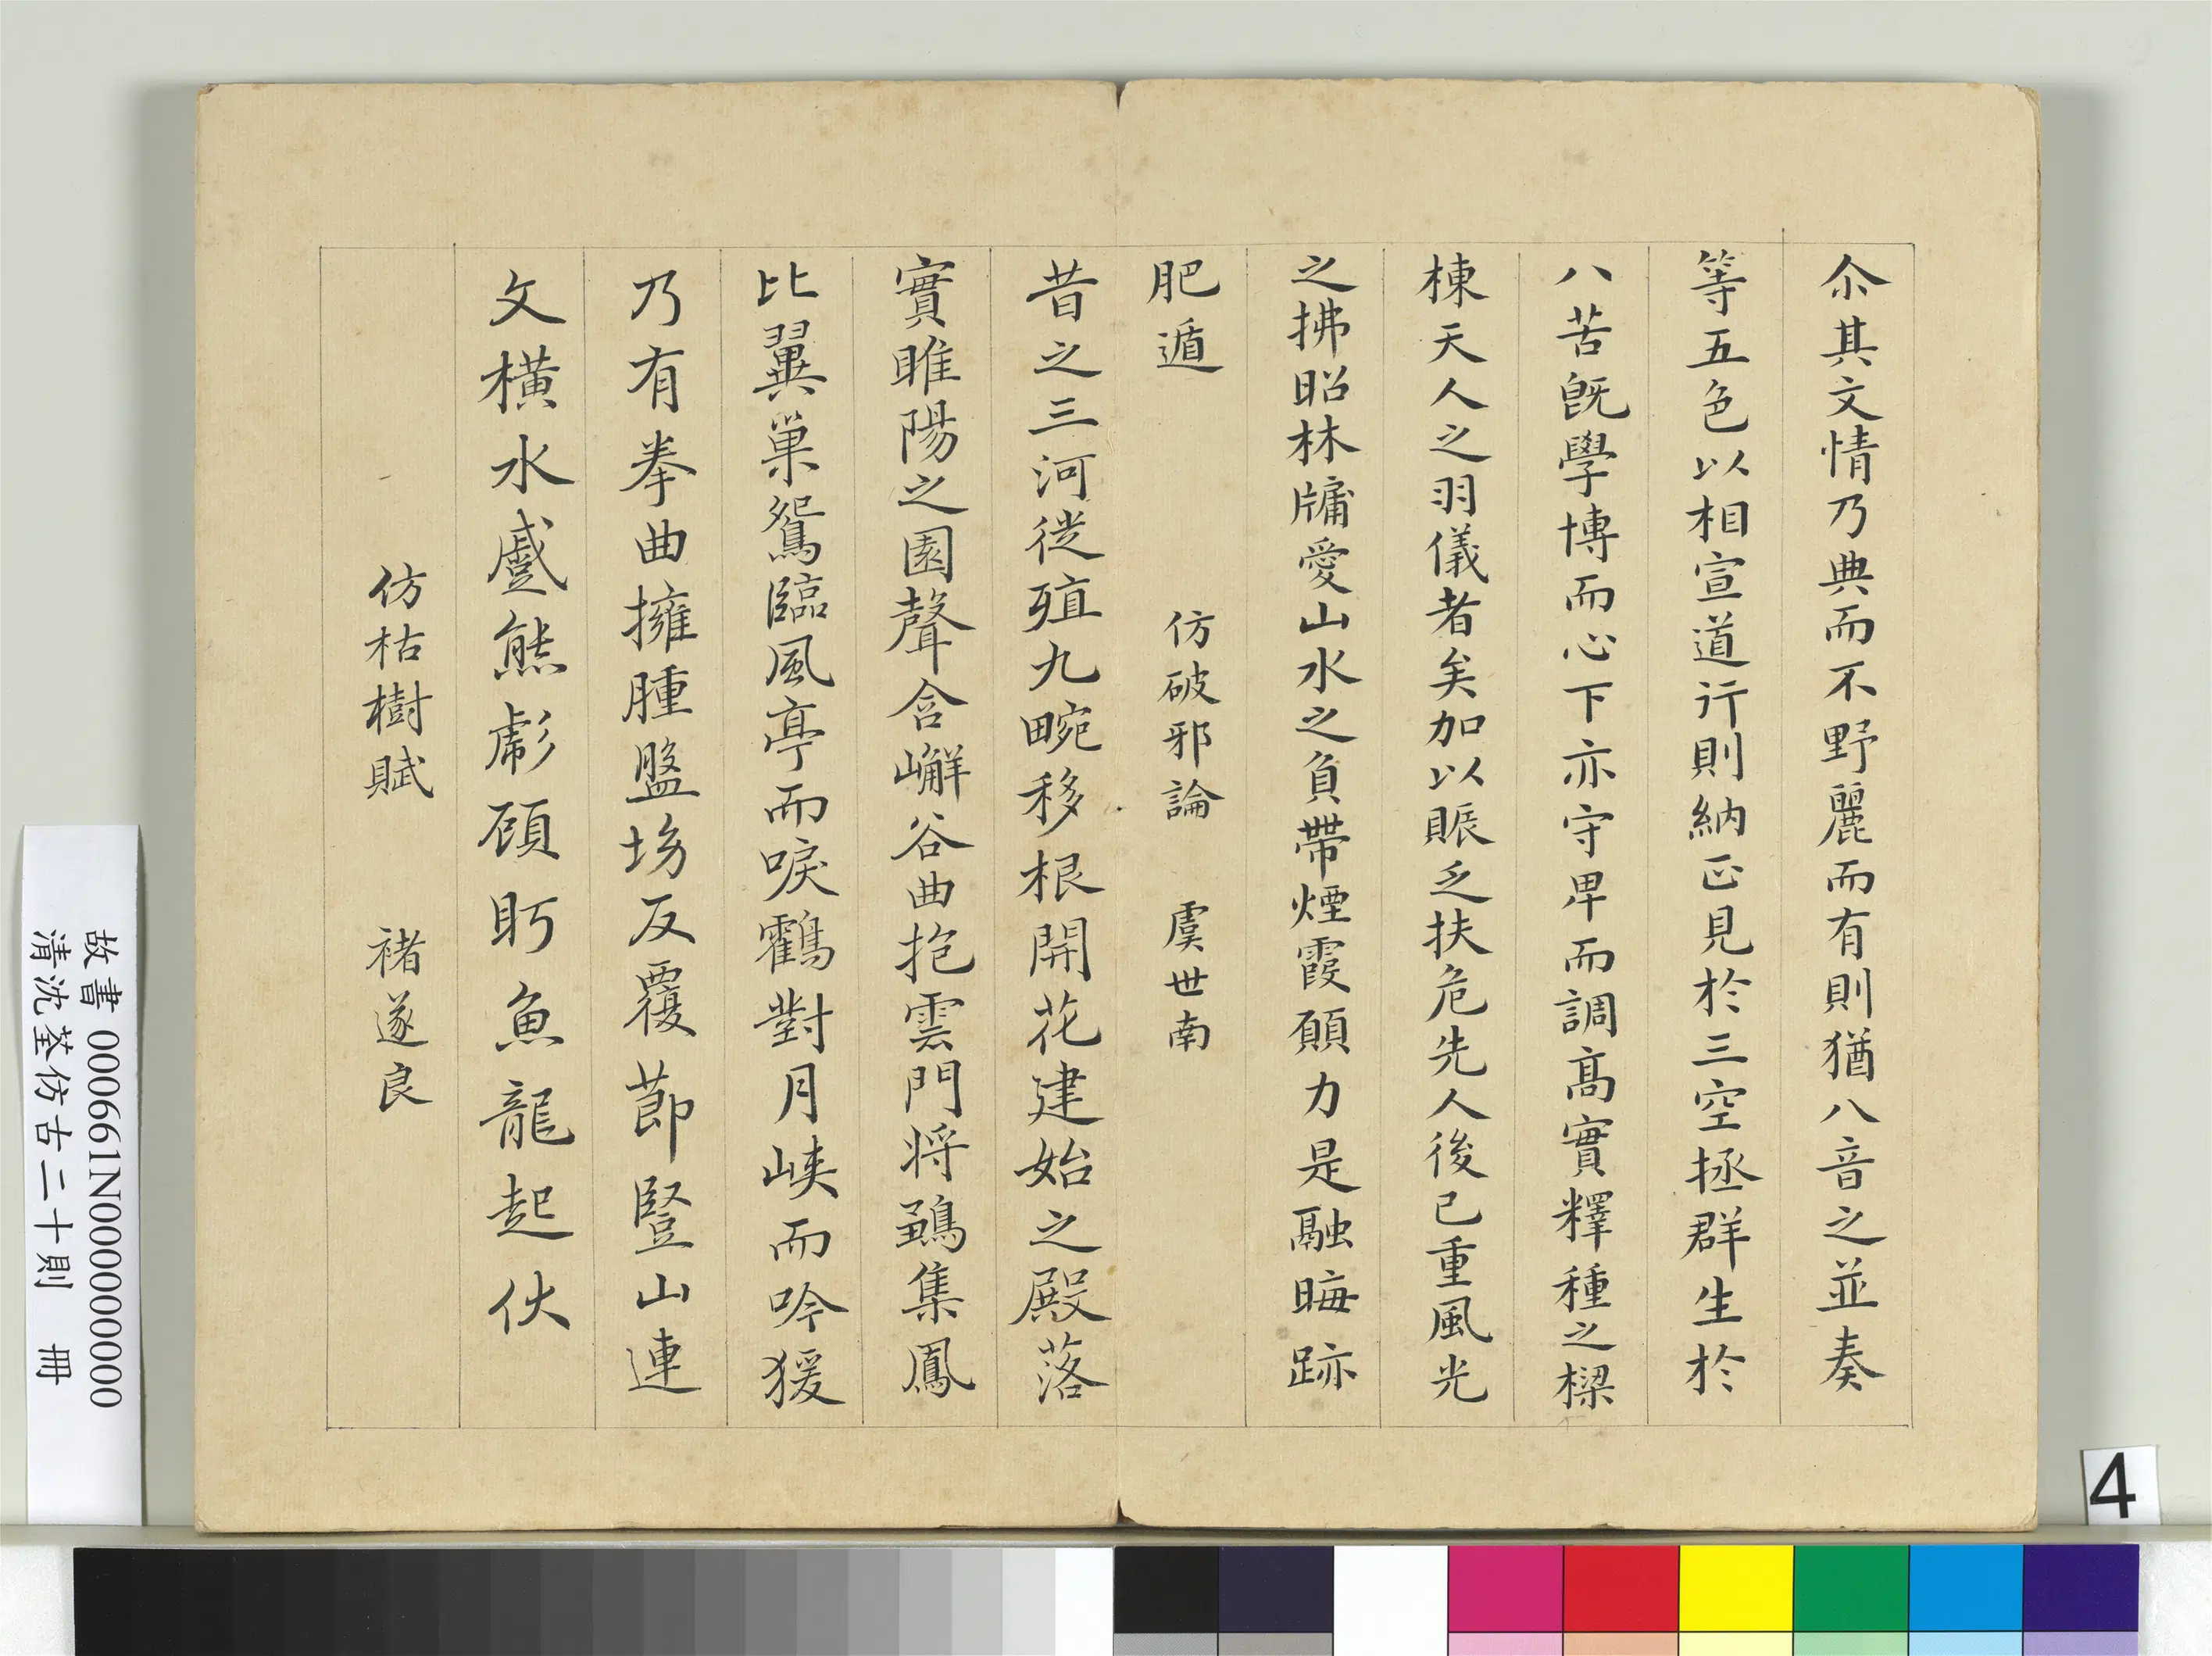 尒其文情乃典而不野麗而有則猶八音之並奏
等五色以相宣道行則納正見於三空拯群生於
八苦既學博而心下亦守卑而調高實釋種之樑
棟天人之羽儀者矣加以賑乏扶危先人後已重風光
之拂昭林牖愛山水之負帶煙霞願力是融晦跡
肥遁
仿破邪論 虞世南
昔之三河徙殖九畹移根開花建始之殿落
實睢陽之園聲含嶰谷曲抱雲門將鶵集鳳
比翼巢鴛臨風亭而唳鶴對月峽而吟猨
乃有拳曲擁腫盤坳反覆節豎山連
文橫水蹙熊彪顧盻魚龍起伏
仿枯樹賦 褚遂良
故書 000661N000000000
清沈荃仿古二十則 冊
4